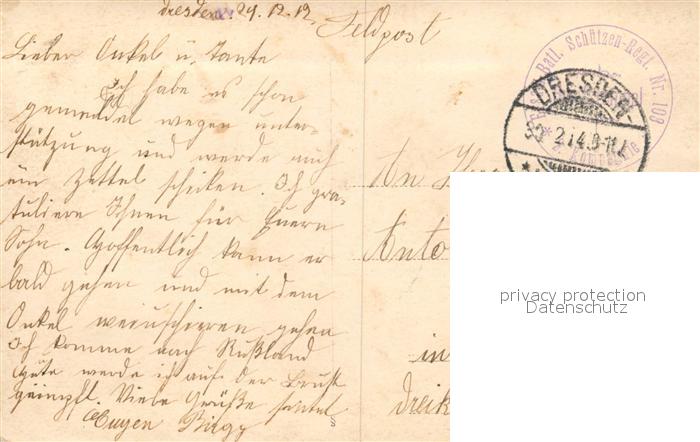 Dresden. 29.12.12
Feldpost
Lieber Onkel u. Tante
Ich habe es schon
gemeldet wegen unter-
stützung und werde auch
ein Zettel schicken. Ich gra-
tuliere Ihnen für Euern
Sohn. Hoffentlich kann er
bald gehen und mit dem
Onkel gehen
Ich komme nach Rußland
Heute werde ich auf der Brust
geimpft. Viele Grüße sendet
Eugen
Batl. Schützen-Regt. Nr. 108
Kompagnie
DRESDEN
An
Anto
in
Dreik
privacy protection
Datenschutz